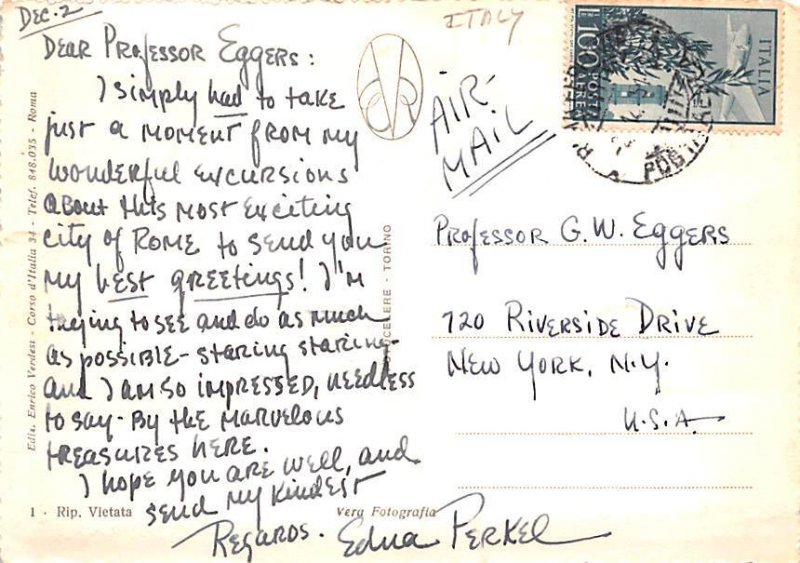 DEC. 2
ITALY
DEAR PROFESSOR EGGERS:
I simply had to take
just a moment from my
wonderful excursions
about this most exciting
city of Rome to send you
my best greetings! I'm
trying to see and do as much
as possible - staring staring -
and I am so impressed, needless
to say - by the marvelous
treasures here.
I hope you are well, and
send my kindest
Regards. Edna Perkel
AIR-
MAIL
L. 100
POSTA
AEREA
ITALIA
PROFESSOR G. W. EGGERS
720 RIVERSIDE DRIVE
NEW YORK, N.Y.
U.S.A.
Ediz. Enrico Verdesi - Corso d'Italia 34 - Telef. 848.035 - Roma
TORINO
1 - Rip. Vietata
Vera Fotografia